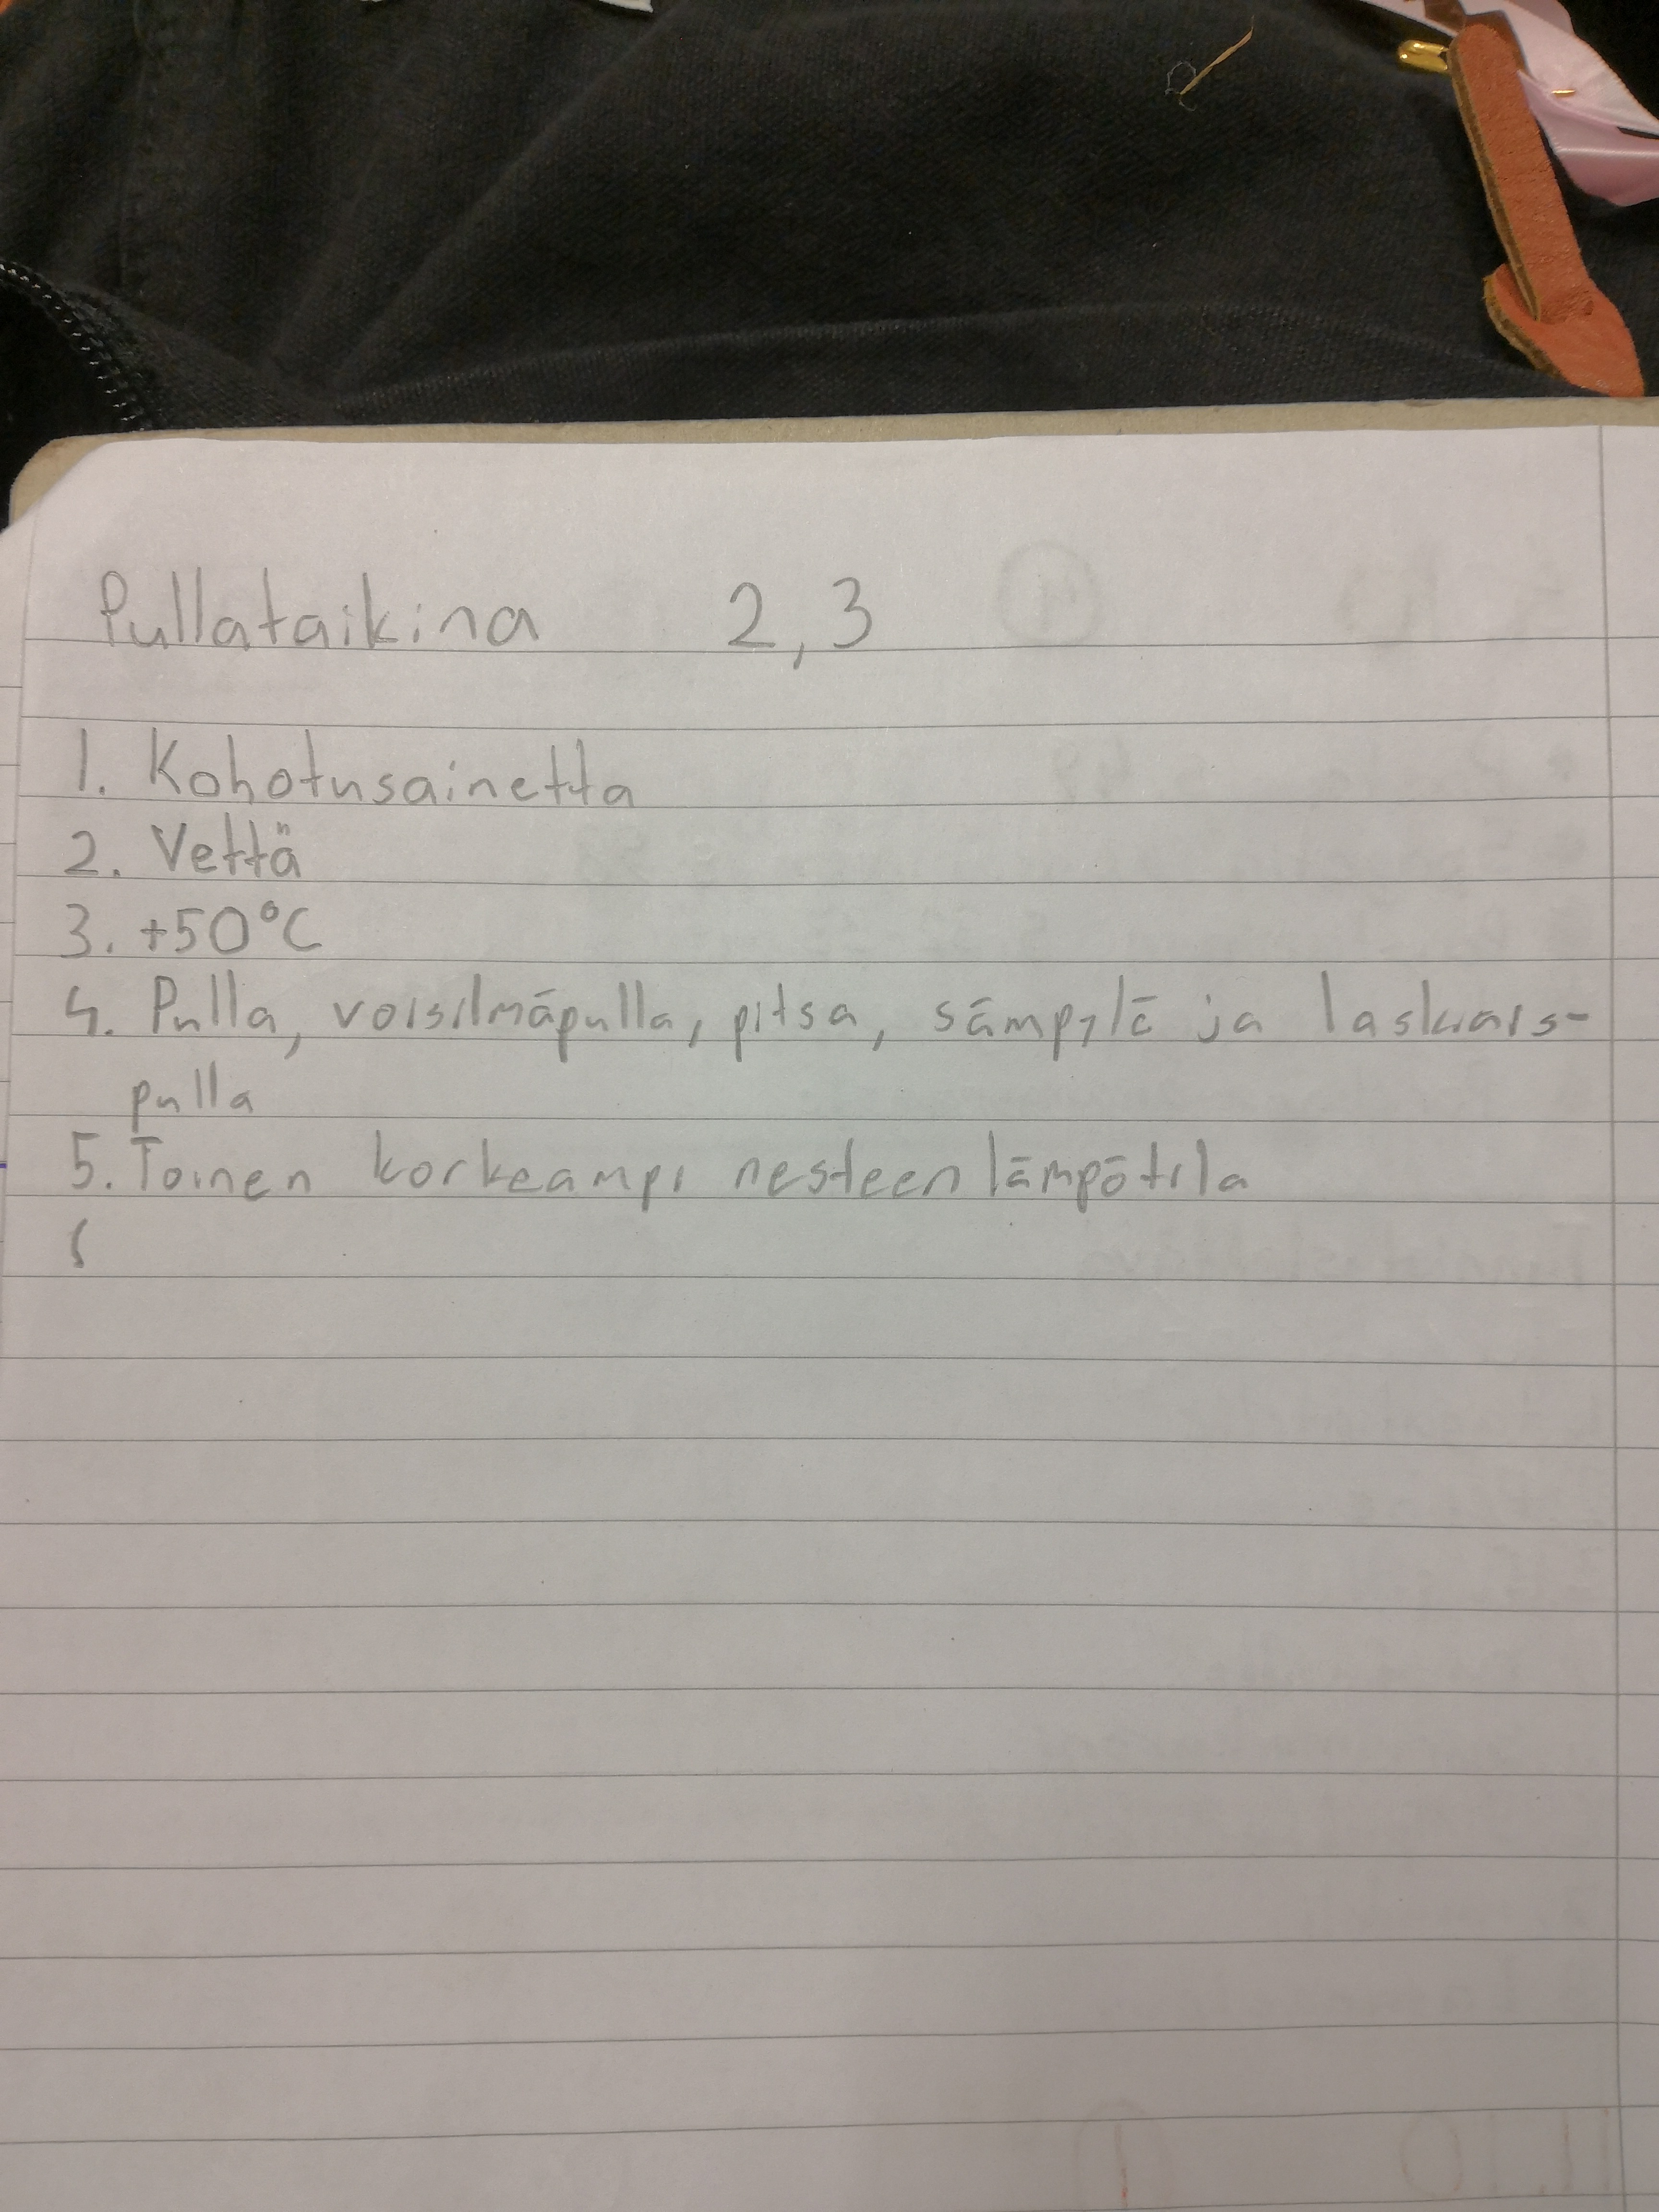 Pullataikina 2,3
1. Kohotusainetta
2. Vettä
3. +50°C
4. Pulla, voisilmäpulla, pitsa, sämpylä ja laskiais-
pulla
5. Toinen korkeampi nesteen lämpötila